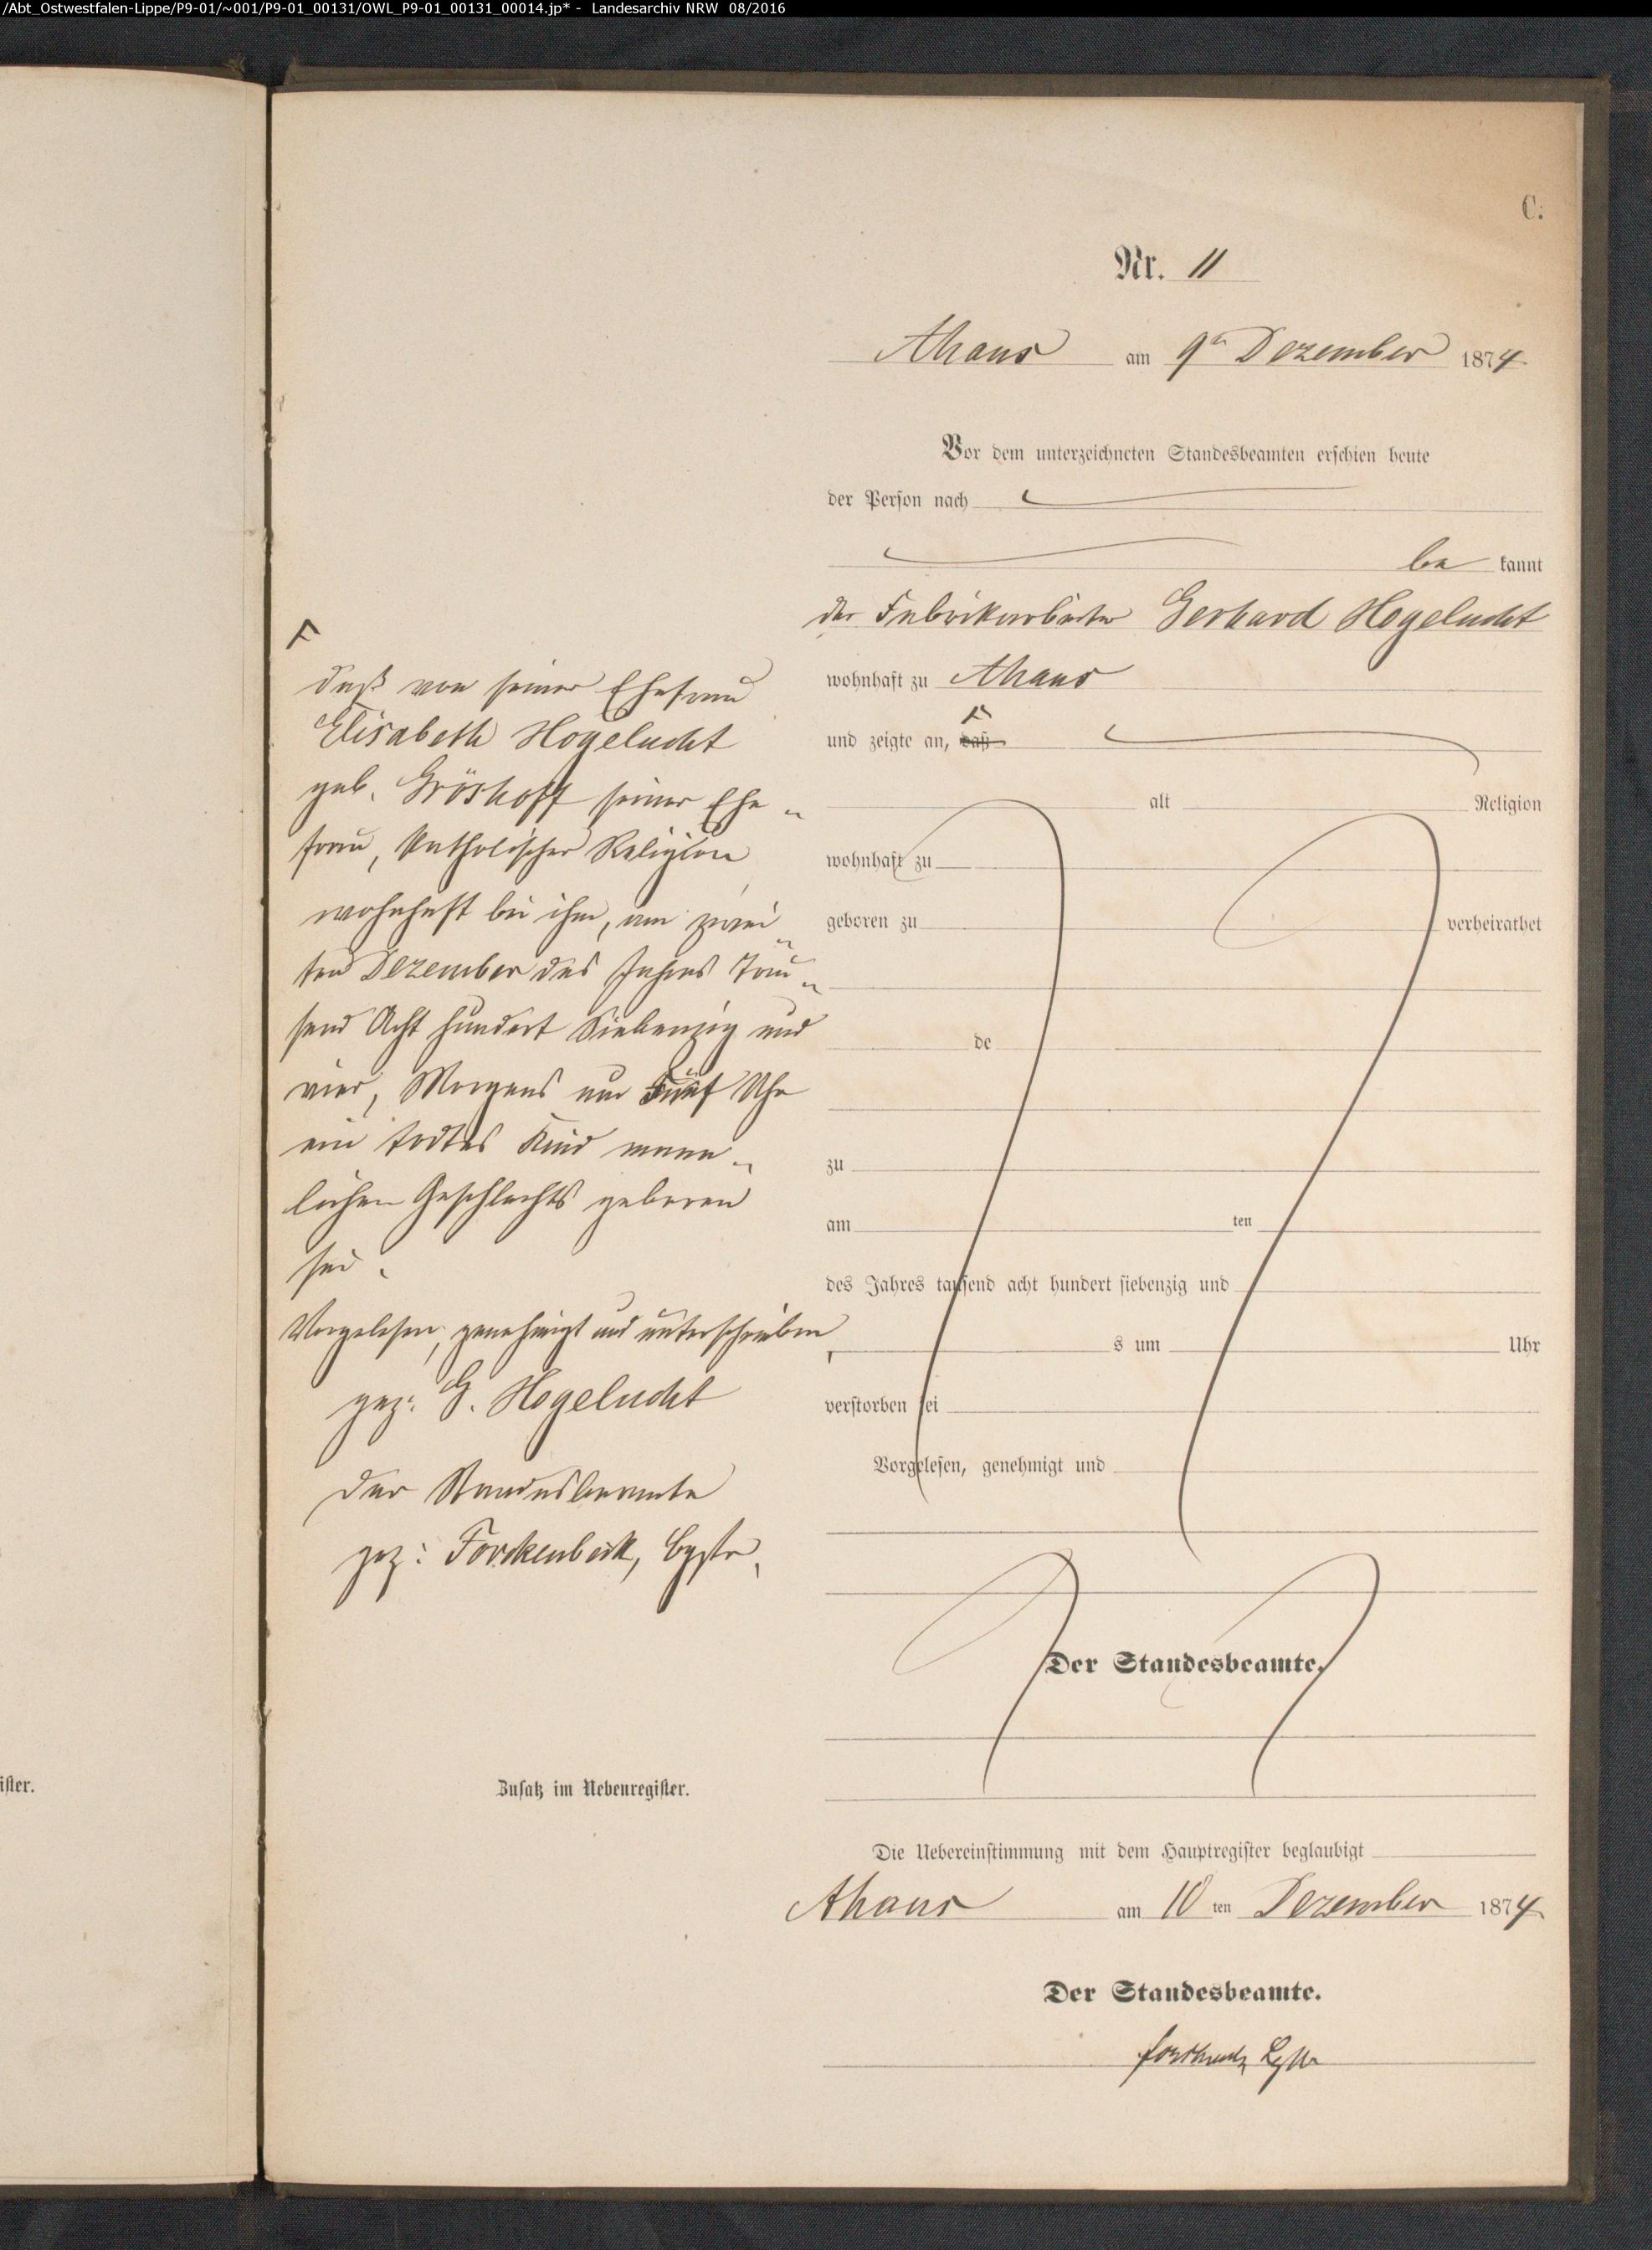 /Abt_Ostwestfalen-Lippe/P9-01/~001/P9-01_00131/OWL_P9-01_00131_00014.jp* - Landesarchiv NRW 08/2016
C.
Nr. 11
Ahaus am 9ten Dezember 1874
Vor dem unterzeichneten Standesbeamten erschien heute
der Person nach
be kannt
der Fabrikarbeiter Gerhard Hogelucht
wohnhaft zu Ahaus
und zeigte an, daß
alt Religion
wohnhaft zu
geboren zu verheirathet
de
zu
am ten
des Jahres tausend acht hundert siebenzig und
s um Uhr
verstorben sei
Vorgelesen, genehmigt und
Der Standesbeamte.
daß von seiner Ehefrau
Elisabeth Hogelucht
geb. Gröshoff seiner Ehe„
frau, katholischer Religion
wohnhaft bei ihm, am zwei„
ten Dezember des Jahres Tau„
send Acht hundert Siebenzig und
vier, Morgens um Fünf Uhr
ein todtes Kind männ„
lichen Geschlechts geboren
sei.
Vorgelesen, genehmigt und unterschrieben,
gez: G. Hogelucht
Der Standesbeamte
gez: Forckenbeck,
ister.
Zusatz im Nebenregister.
Die Uebereinstimmung mit dem Hauptregister beglaubigt
Ahaus am 10 ten Dezember 1874
Der Standesbeamte.